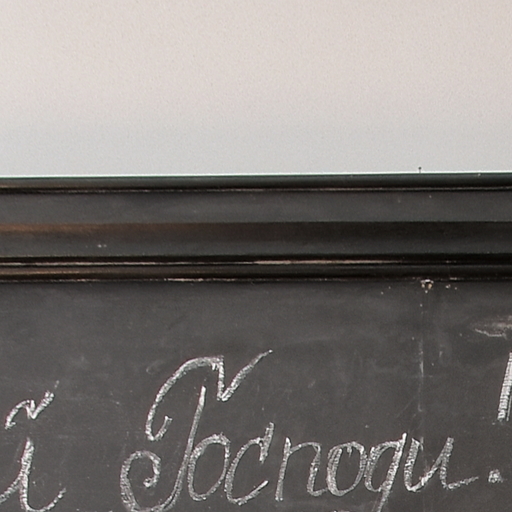 й Господи.